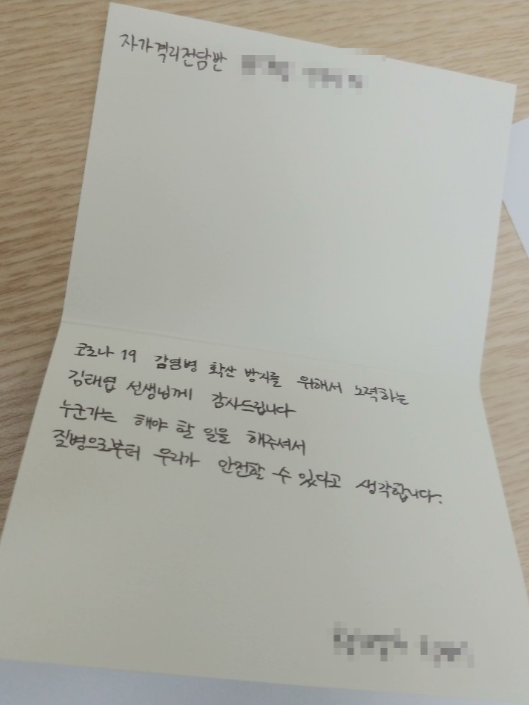 자가격리전담반
코로나 19 감염병 확산 방지를 위해서 노력하는
김태엽 선생님께 감사드립니다
누군가는 해야 할 일을 해주셔서
질병으로부터 우리가 안전할 수 있다고 생각합니다.